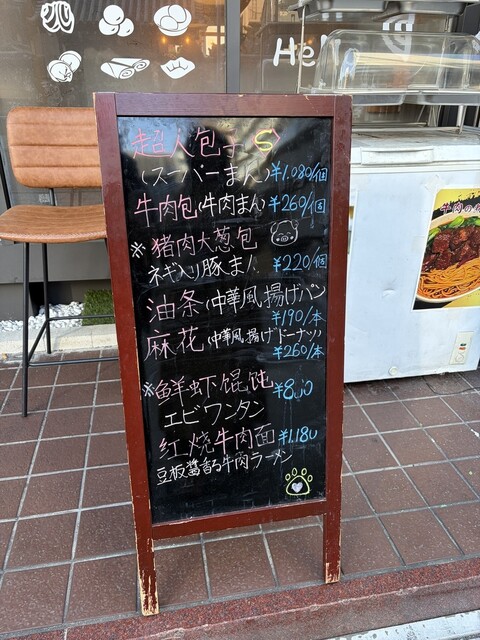 He
超人包子 S
(スーパーまん) ¥1.080/個
牛肉包(牛肉まん) ¥260/個
※猪肉大葱包
ネギ入り豚まん ¥220/個
油条(中華風揚げパン)
¥190/本
麻花(中華風揚げドーナツ)
¥260/本
※鲜虾馄饨 ¥800
エビワンタン
红烧牛肉面 ¥1.180
豆板醤香る牛肉ラーメン